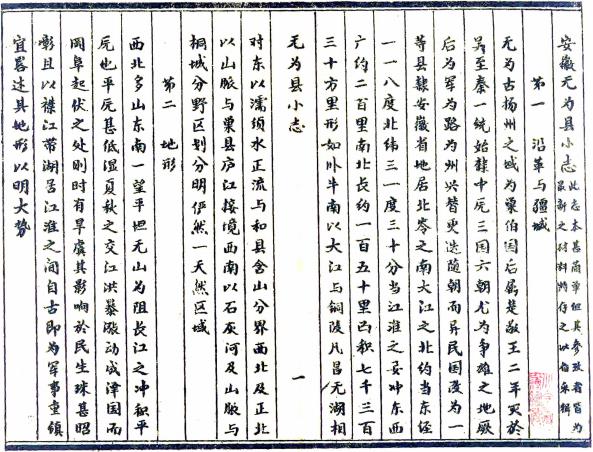 安徽无为县小志
此志本甚简单但其参考者皆为
最新之材料特存之以备采辑
第一 沿革与疆域
无为古扬州之域为巢伯国后属楚敬王二年灭於
吴至秦一统始隶中原三国六朝尤为争雄之地厥
后为军为路为州兴替更迭随朝而异民国改为一
等县隶安徽省地居北岺之南大江之北约当东经
一一八度北纬三一度三十分当江淮之要冲东西
广约二百里南北长约一百五十里面积七千三百
三十方里形如卧牛南以大江与铜陵凡昌无湖相
无为县小志 一
对东以濡须水正流与和县含山分界西北及正北
以山脉与巢县庐江接境西南以石灰河及山脉与
桐城分野区划分明俨然一天然区域
第二 地形
西北多山东南一望平坦无山为阻长江之冲积平
原也平原甚低湿夏秋之交江洪暴涨动成泽国而
冈阜起伏之处则时有旱虞其影响於民生殊甚昭
彰且以襟江带湖居江淮之间自古即为军事重镇
宜畧述其地形以明大势